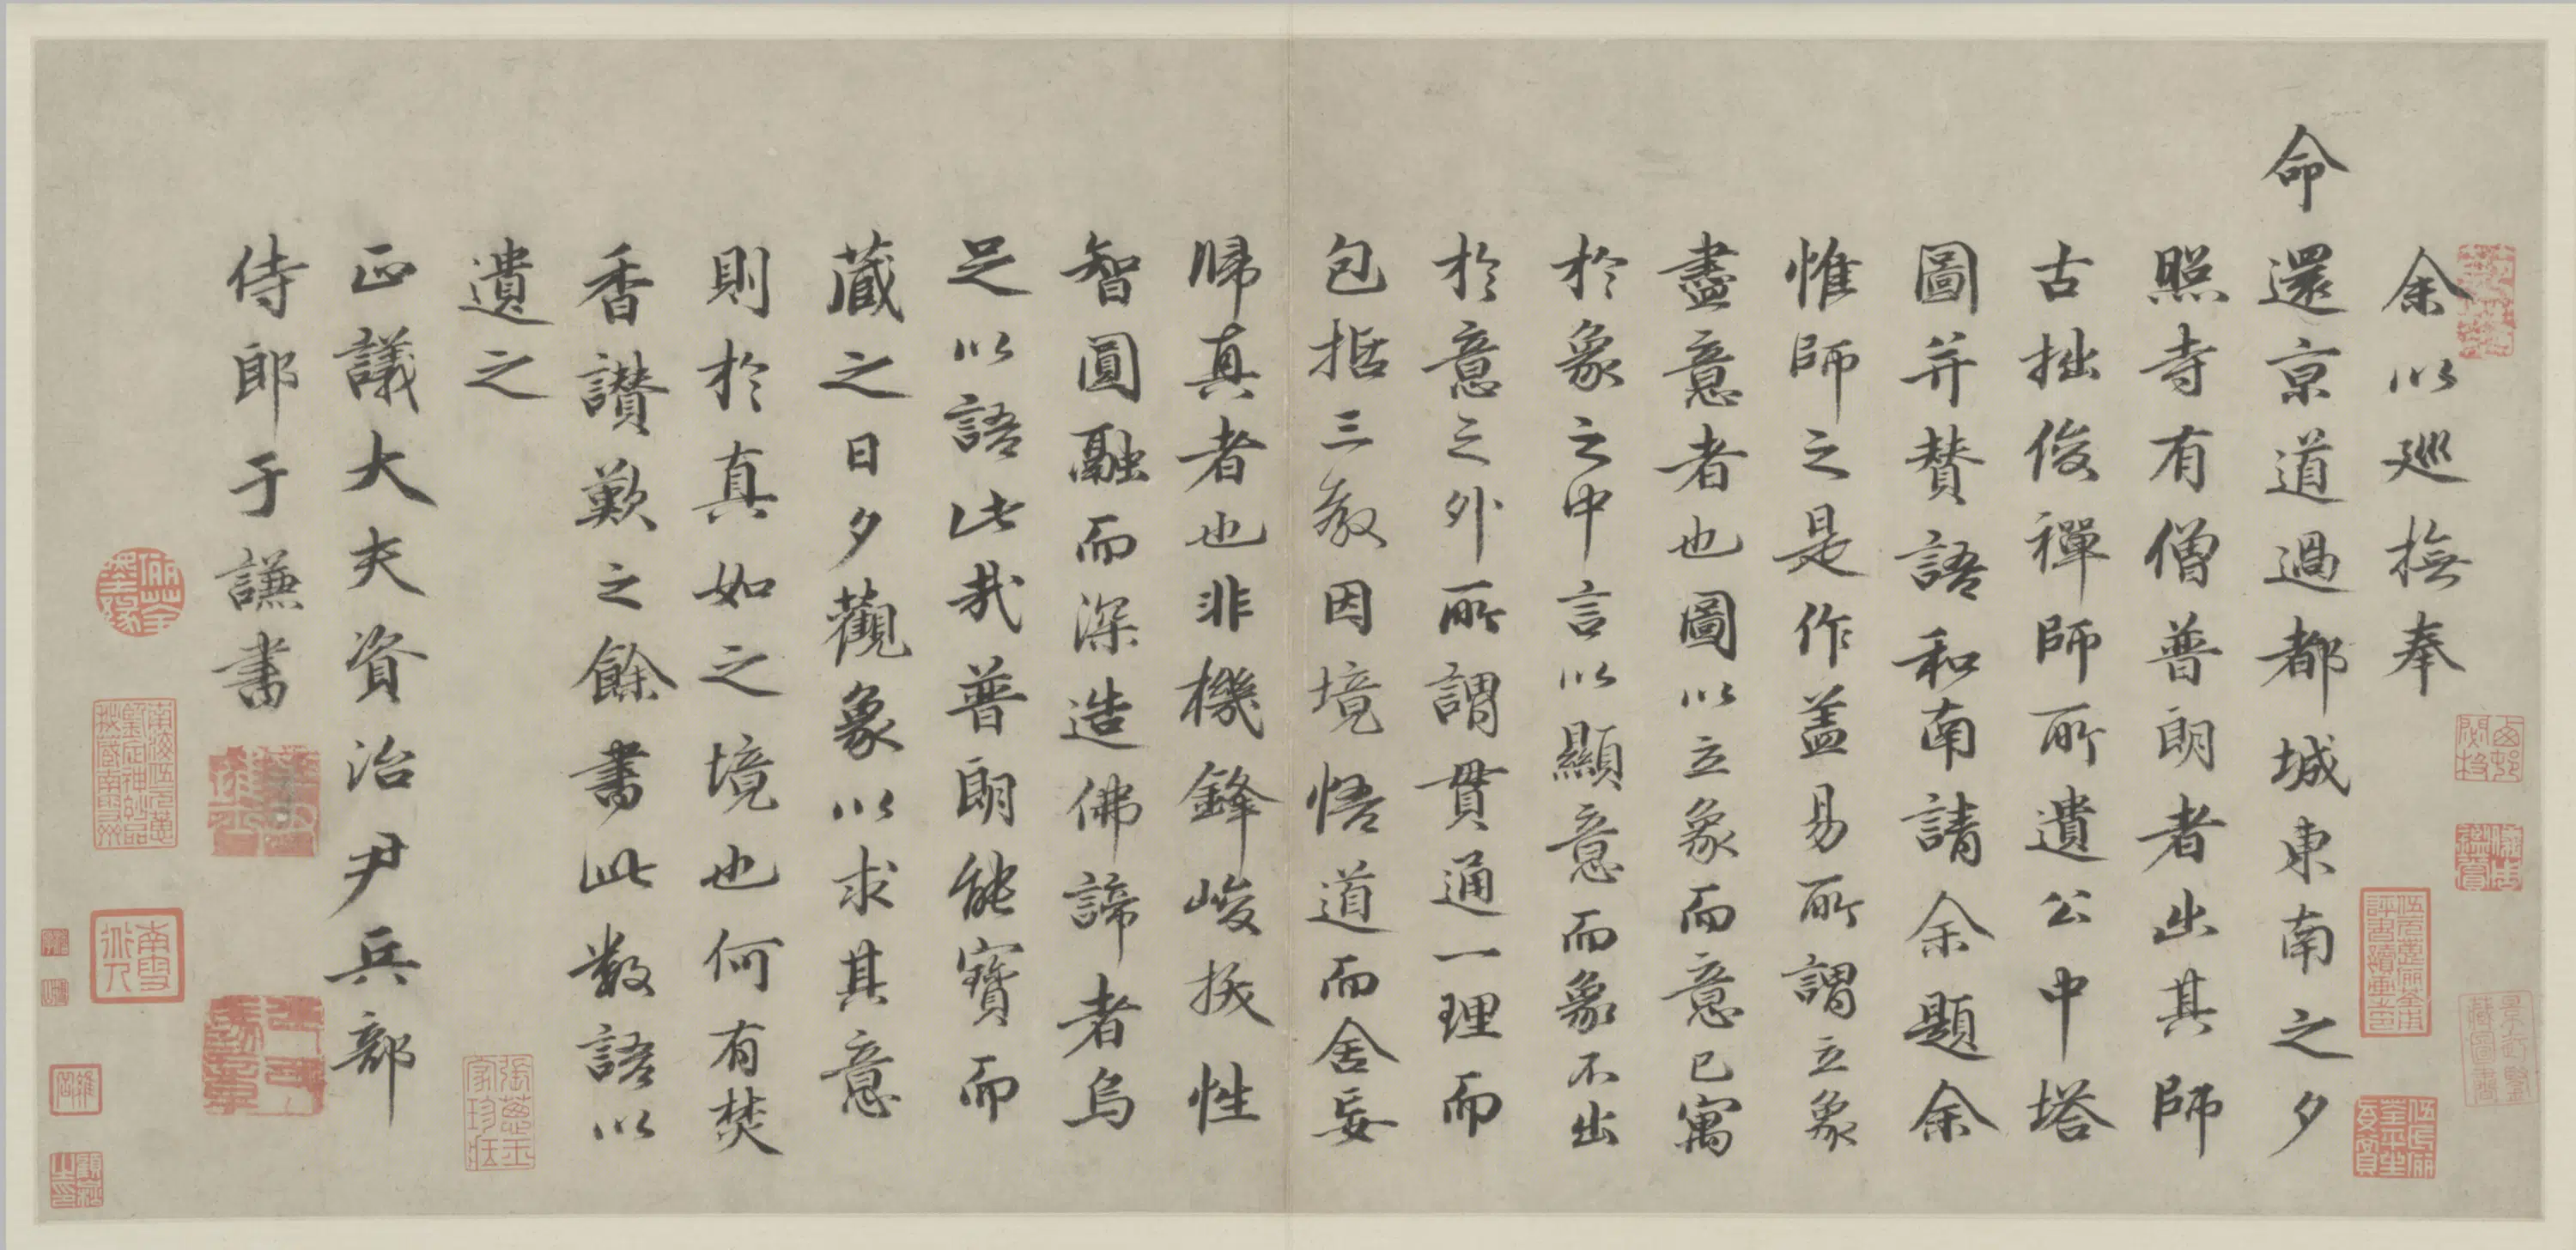 余以廵撫奉
命還京道過都城東南之夕
照寺有僧普朗者出其師
古拙俊禪師所遺公中塔
圖并賛語和南請余題余
惟師之是作盖易所謂立象
盡意者也圖以立象而意已寓
於象之中言以顯意而象不出
於意之外所謂貫通一理而
包括三教因境悟道而舍妄
歸真者也非機鋒峻拔性
智圓融而深造佛諦者烏
足以語此哉普朗能寶而
藏之日夕觀象以求其意
則於真如之境也何有焚
香讃歎之餘書此數語以
遺之
正議大夫資治尹兵部
侍郎于謙書
張蔥玉
家珍藏
南雪